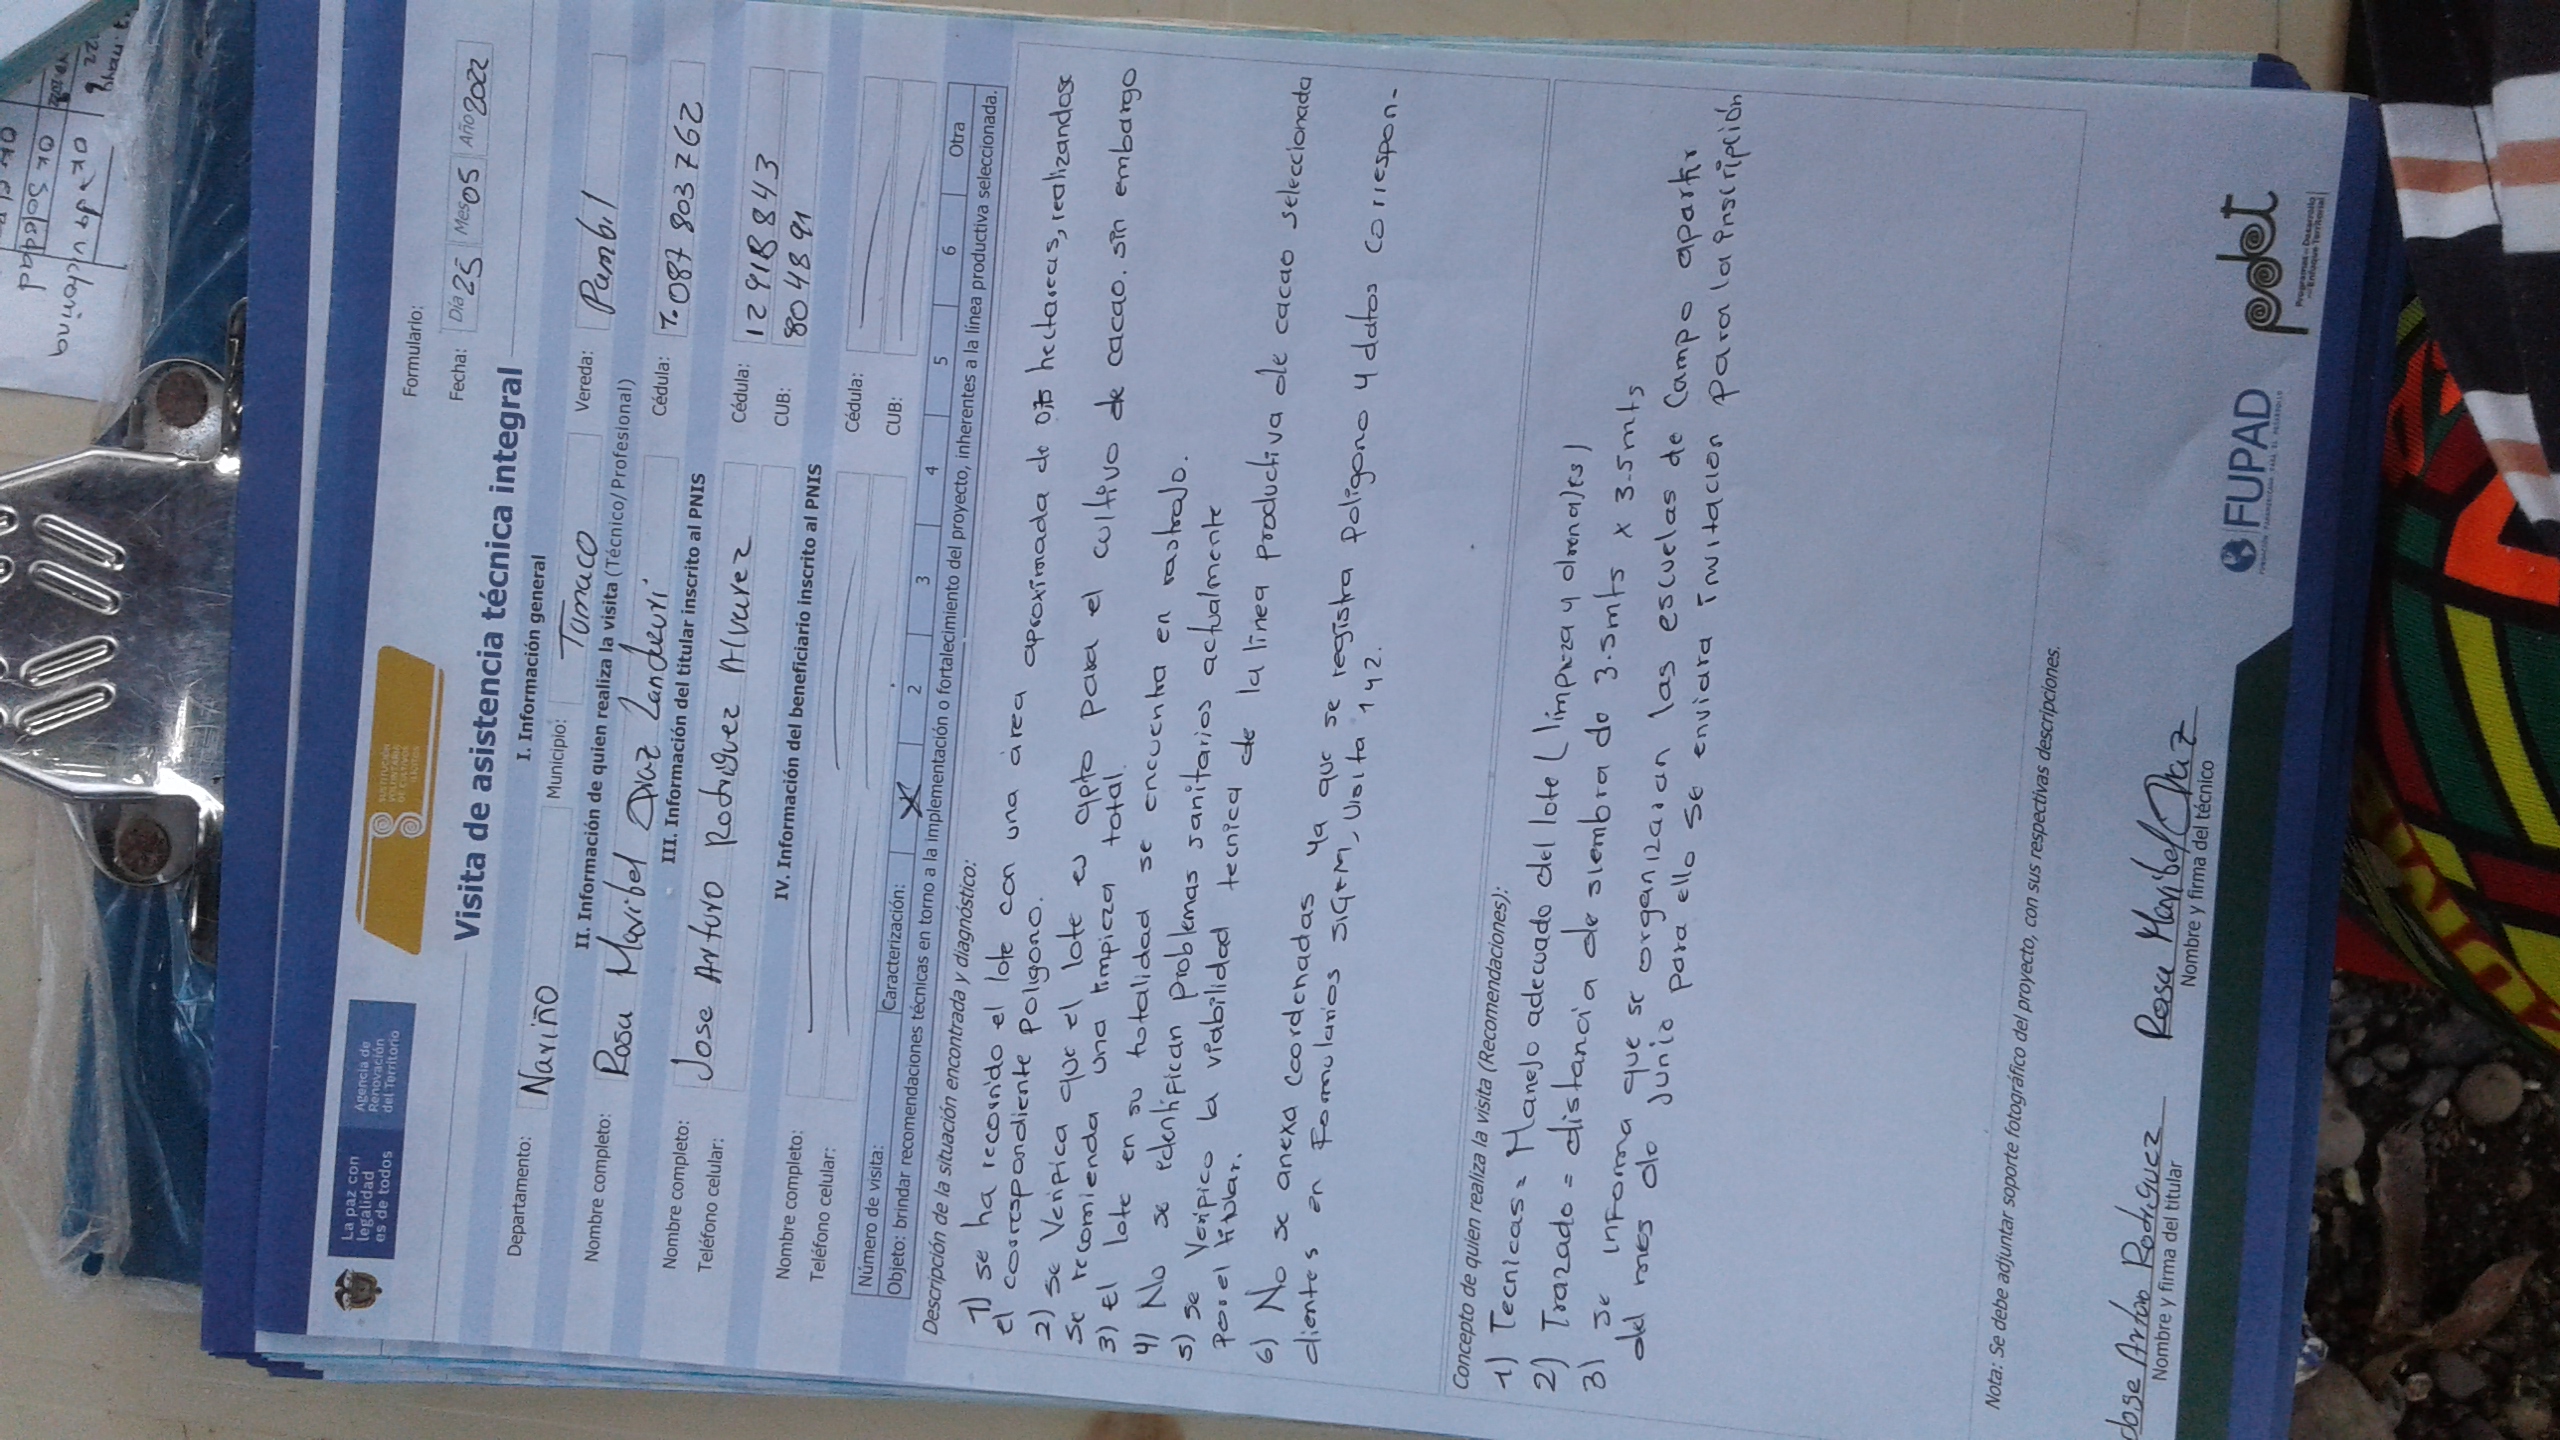 La paz con
legalidad
es de todos
Agencia de
Renovación
del Territorio
SUSTITUCIÓN
VOLUNTARIA
DE CULTIVOS
ILÍCITOS
Formulario:
Fecha: Día 25 Mes 05 Año 2022
Visita de asistencia técnica integral
I. Información general
Departamento: Nariño Municipio: Tumaco Vereda: Pambil
II. Información de quien realiza la visita (Técnico/Profesional)
Nombre completo: Rosa Maribel Diaz Landazuri Cédula: 1.087 803 762
III. Información del titular inscrito al PNIS
Nombre completo: Jose Arturo Rodriguez Alvarez Cédula: 12918843
Teléfono celular: CUB: 804891
IV. Información del beneficiario inscrito al PNIS
Nombre completo: Cédula:
Teléfono celular: CUB:
Número de visita: Caracterización: X 2 3 4 5 6 Otra
Objeto: brindar recomendaciones técnicas en torno a la implementación o fortalecimiento del proyecto, inherentes a la línea productiva seleccionada.
Descripción de la situación encontrada y diagnóstico:
1) se ha recorrido el lote con una área aproximada de 0,75 hectareas, realizandose
el correspondiente Poligono.
2) se Verifica que el lote es apto para el cultivo de cacao. sin embargo
se recomienda una limpieza total.
3) El lote en su totalidad se encuentra en rastrojo.
4) No se identifican problemas sanitarios actualmente
5) se Verifico la viabilidad tecnica de la línea productiva de cacao seleccionada
Por el titular.
6) No se anexa coordenadas ya que se registra Poligono y datos correspon-
dientes en Formularios SIGFM, visita 142.
Concepto de quien realiza la visita (Recomendaciones):
1) Tecnicas = Manejo adecuado del lote (limpieza y drenajes)
2) Trazado = distancia de siembra de 3.5mts x 3.5mts
3) Se informa que se organizaran las escuelas de Campo apartir
del mes de junio para ello se enviara invitacion Para la inscripción
Nota: Se debe adjuntar soporte fotográfico del proyecto, con sus respectivas descripciones.
Jose Arturo Rodriguez Rosa Maribel Diaz
Nombre y firma del titular Nombre y firma del técnico
FUPAD
pdet
Programas de Desarrollo
con Enfoque Territorial